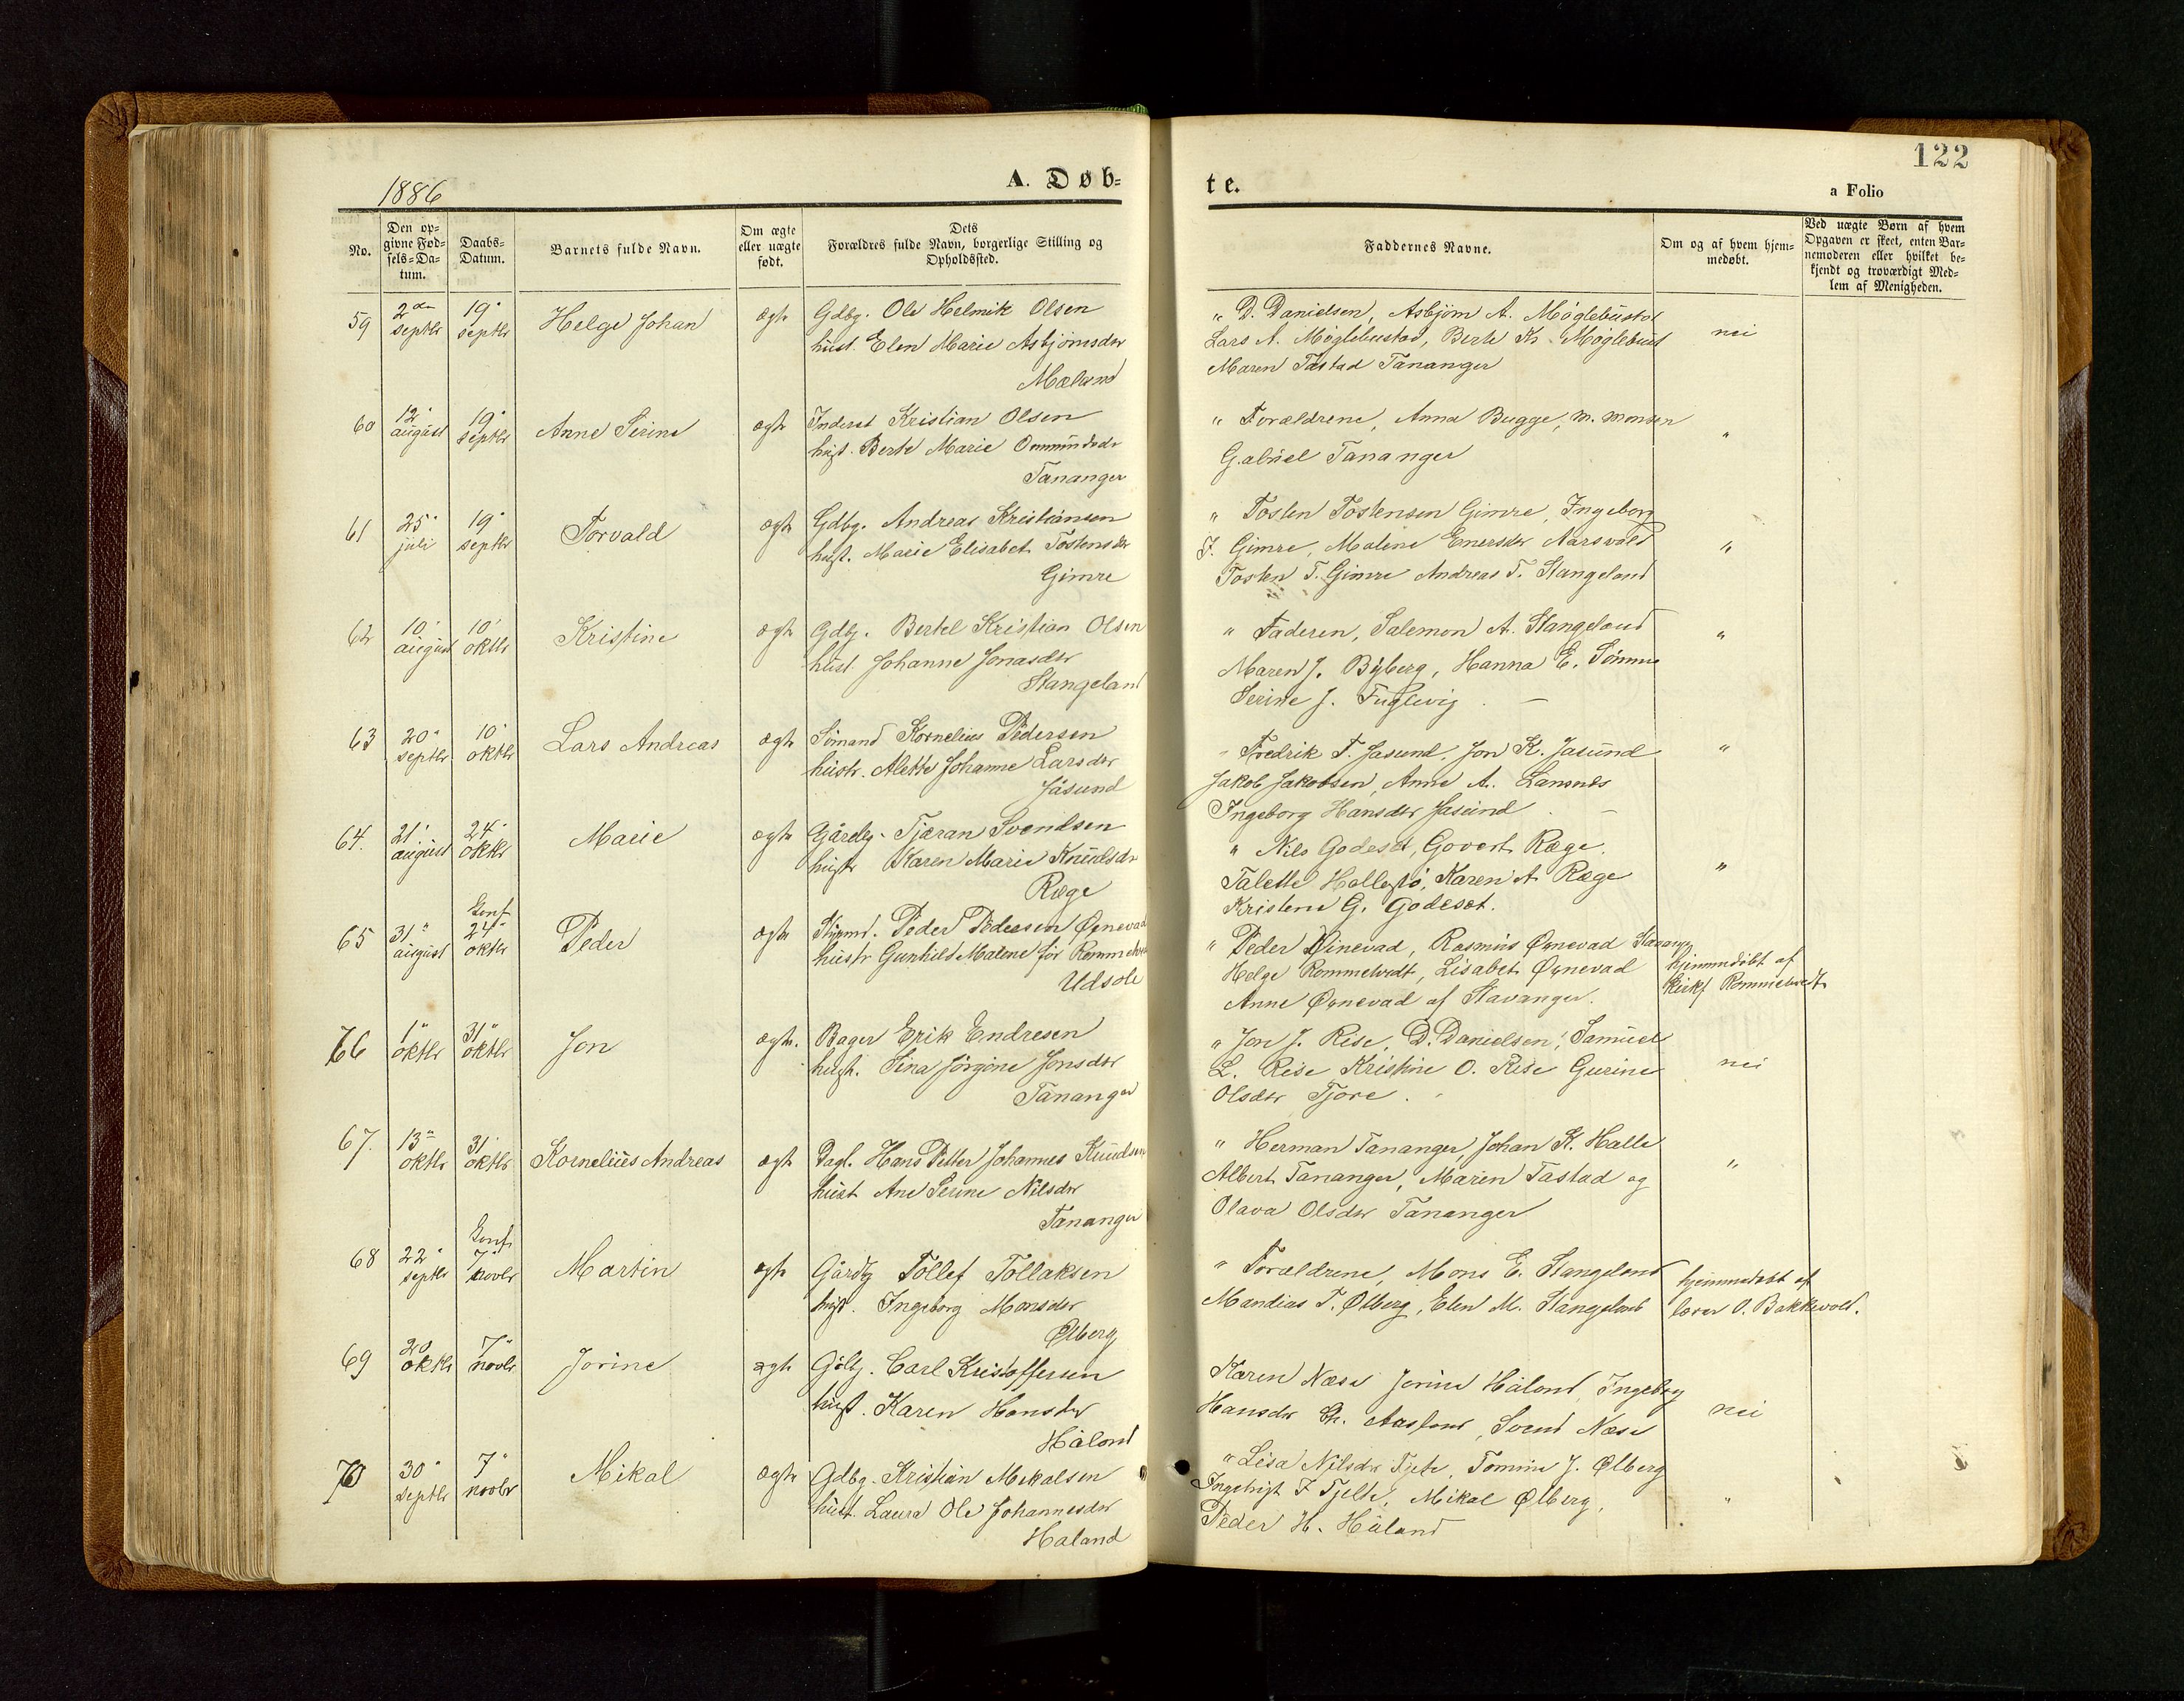 122
1886
A. Døb-
te.
a Folio
No.
Den op-
givne Fød-
sels-Da-
tum.
Daabs-
Datum.
Barnets fulde Navn.
Om ægte
eller uægte
født.
Dets
Forældres fulde Navn, borgerlige Stilling og
Opholdssted.
Faddernes Navne.
Om og af hvem hjem-
medøbt.
Ved uægte Børn af hvem
Opgaven er skeet, enten Bar-
nemoderen eller hvilket be-
kjendt og troværdigt Med-
lem af Menigheden.
59 2den septbr 19' septbr Helge Johan ægte Gdbg. Ole Helmik Olsen
hust. Elen Marie Asbjörnsdtr
Mæland
" D. Danielsen, Asbjörn A. Möglebustad
Lars A. Möglebustad, Berte K. Möglebust
Maren Tastad Tananger
nei
60 12' august 19' septbr Anne Serine ægte Inderst Kristian Olsen
hust. Berte Marie Ommundsdr
Tananger
" Forældrene, Anna Bugge, M. Monsen
Gabriel Tananger
"
61 25' juli 19' septbr Torvald ægte Gdbg. Andreas Kristiansen
hust. Marie Elisabet Tostensdr
Gimre
" Tosten Tostensen Gimre, Ingeborg
T. Gimre, Malene Enersdtr Aarsvold
Tosten T. Gimre Andreas T. Stangeland
"
62 10' august 10' oktbr Kristine ægte Gdbg. Bertel Kristian Olsen
hust Johanne Jonasdtr
Stangeland
" Faderen, Salemon A. Stangeland
Maren J. Byberg, Hanna E. Sömme
Serine J. Fuglevig. —
"
63 20' septbr 10' oktbr Lars Andreas ægte Sömand Kornelius Pedersen
hustr. Alette Johanne Larsdtr
Jåsund
" Fredrik T. Jasund, Jon K. Jasund
Jakob Jakobsen, Anne A.
Ingeborg Hansdtr Jasund . —
"
64. 21' august 24' oktbr Marie ægte Gårdbg. Tjæran Svendsen
hustr Karen Marie Knudsdr
Ræge
" Nils Godeset, Govert Ræge.
Talette Hollestö, Karen A Ræge
Kristene G. Godeset.
"
65 31" august Konf. 24' oktbr Peder ægte Styrmd. Peder Pedersen Øgnevad
hustr Gunhild Malene för Rommetvedt
Udsole
" Peder Øinevad, Rasmus Øgnevad Stavanger
Helge Rommetvedt, Lisabet Øgnevad
Anne Øgnevad af Stavanger.
hjemmedöbt af
Kirks. Rommetvedt
66 1" oktbr 31" oktbr Jon ægte. Bager Erik Endresen
hust. Sina Jörgine Jonsdtr
Tananger
" Jon J. Rise, D. Danielsen, Samuel
L. Rise Kristine O. Rise Gurine
Olsdtr Tjore.
nei
67. 13" oktbr 31' oktbr Kornelius Andreas ægte Dagl. Hans Petter Johannes Knudsen
hust Ane Serine Nilsdtr
Tananger
" Herman Tananger, Johan K. Halle
Albert Tananger, Maren Tastad og
Olava Olsdtr Tananger
"
68 22' septbr Konf. 7' novbr Martin ægte Gårdbg Tollef Tollaksen
hust. Ingeborg Monsdtr
Ølberg
" Forældrene, Mons E. Stangeland
Mandias T. Ølberg, Elen M. Stangeland
hjemmedöbt af
lærer O. Bakkevold.
69 20 oktbr 7" novbr Jorine ægte Gdbg. Carl Kristoffersen
hust. Karen Hansdtr
Håland
Karen Næse Jorine Håland, Ingeborg
Hansdtr Svend Næse
nei
70 30' septbr 7" novbr Mikal ægte Gdbg. Kristian Mikalsen
hust. Laura Ole Johannesdtr
Haland
" Lisa Nilsdtr Tjelte, Tomine J. Ølberg
T Tjelte, Mikal Ølberg,
Peder H. Håland
"